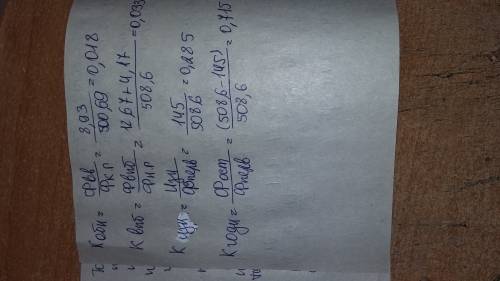 К обн = Фвв / Фк.г = 8,93 / 500,69 = 0,018
К выб = Фвыб / Фн.г = 12,67+4,17 / 508,6 = 0,033
К изн = Изн / Фперв = 145 / 508,6 = 0,285
К годн = Фост / Фперв = (508,6-145) / 508,6 = 0,715